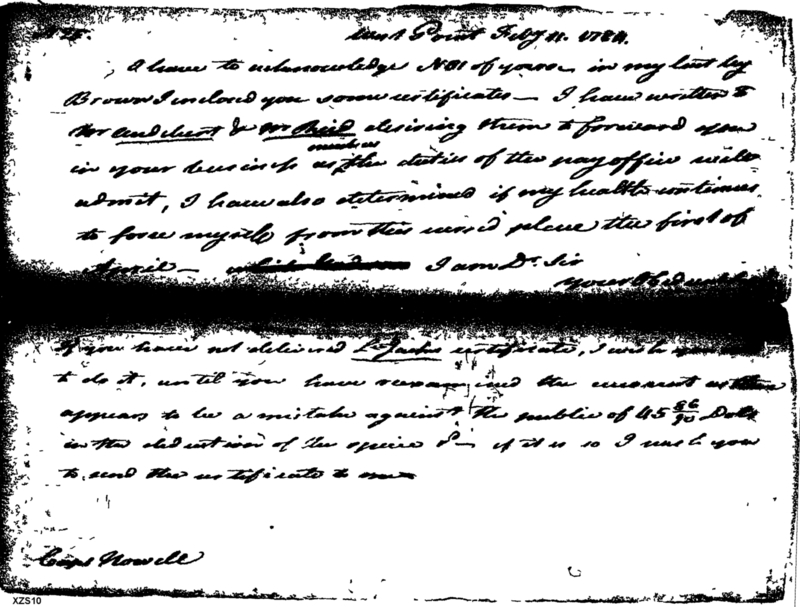 West Point Feby 11. 1784.
I have to acknowledge No 31 of yours in my last by
Brown I inclosed you some certificates — I have written to
Mr Audebert & Mr Reid desiring them to forward you
much as
in your business as the duties of the pay office will
admit, I have also determined if my health continues
to force myself from this cursed place the first of
April — I am Dr. Sir
your Obed
If you have not delivered Lt certificate, I wish you
to do it, until you have reexamined the account as there
appears to be a mistake against the public of 45 86/90 Dolls
in the deduction of the specie &— if it is so I wish you
to send the certificate to me
Capt Howell
XZS10